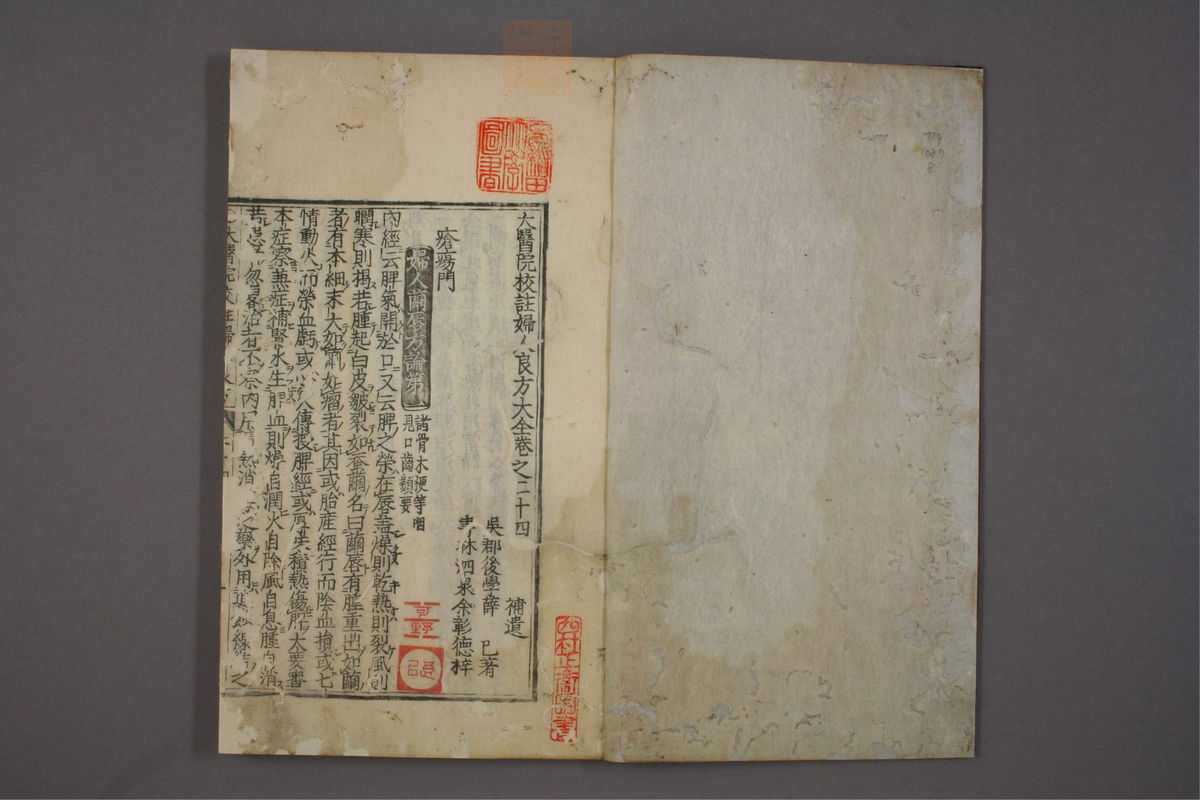 太醫院校註婦人良方大全卷之二十四
補遺
吳郡後學薛 已著
書林泗泉余彰德梓
瘡瘍門
婦人繭唇方論第一
諸骨木梗等咽
見口齒類要
內經云脾氣開於口又云脾之榮在唇蓋燥則乾熱則裂風則
瞤寒則揭若腫起白皮皺裂如蚕繭名曰繭唇有腫重出如繭
者有本細末大如繭如瘤者其因或胎産經行而陰血損或七
情動火而榮血虧或 傳授脾經或厚味積熱傷脾大要審
本症察兼症補腎水生脾血則燥自潤火自除風自息腫自消
若患 忽畧治者不察內 熱消 之藥外用
圖書